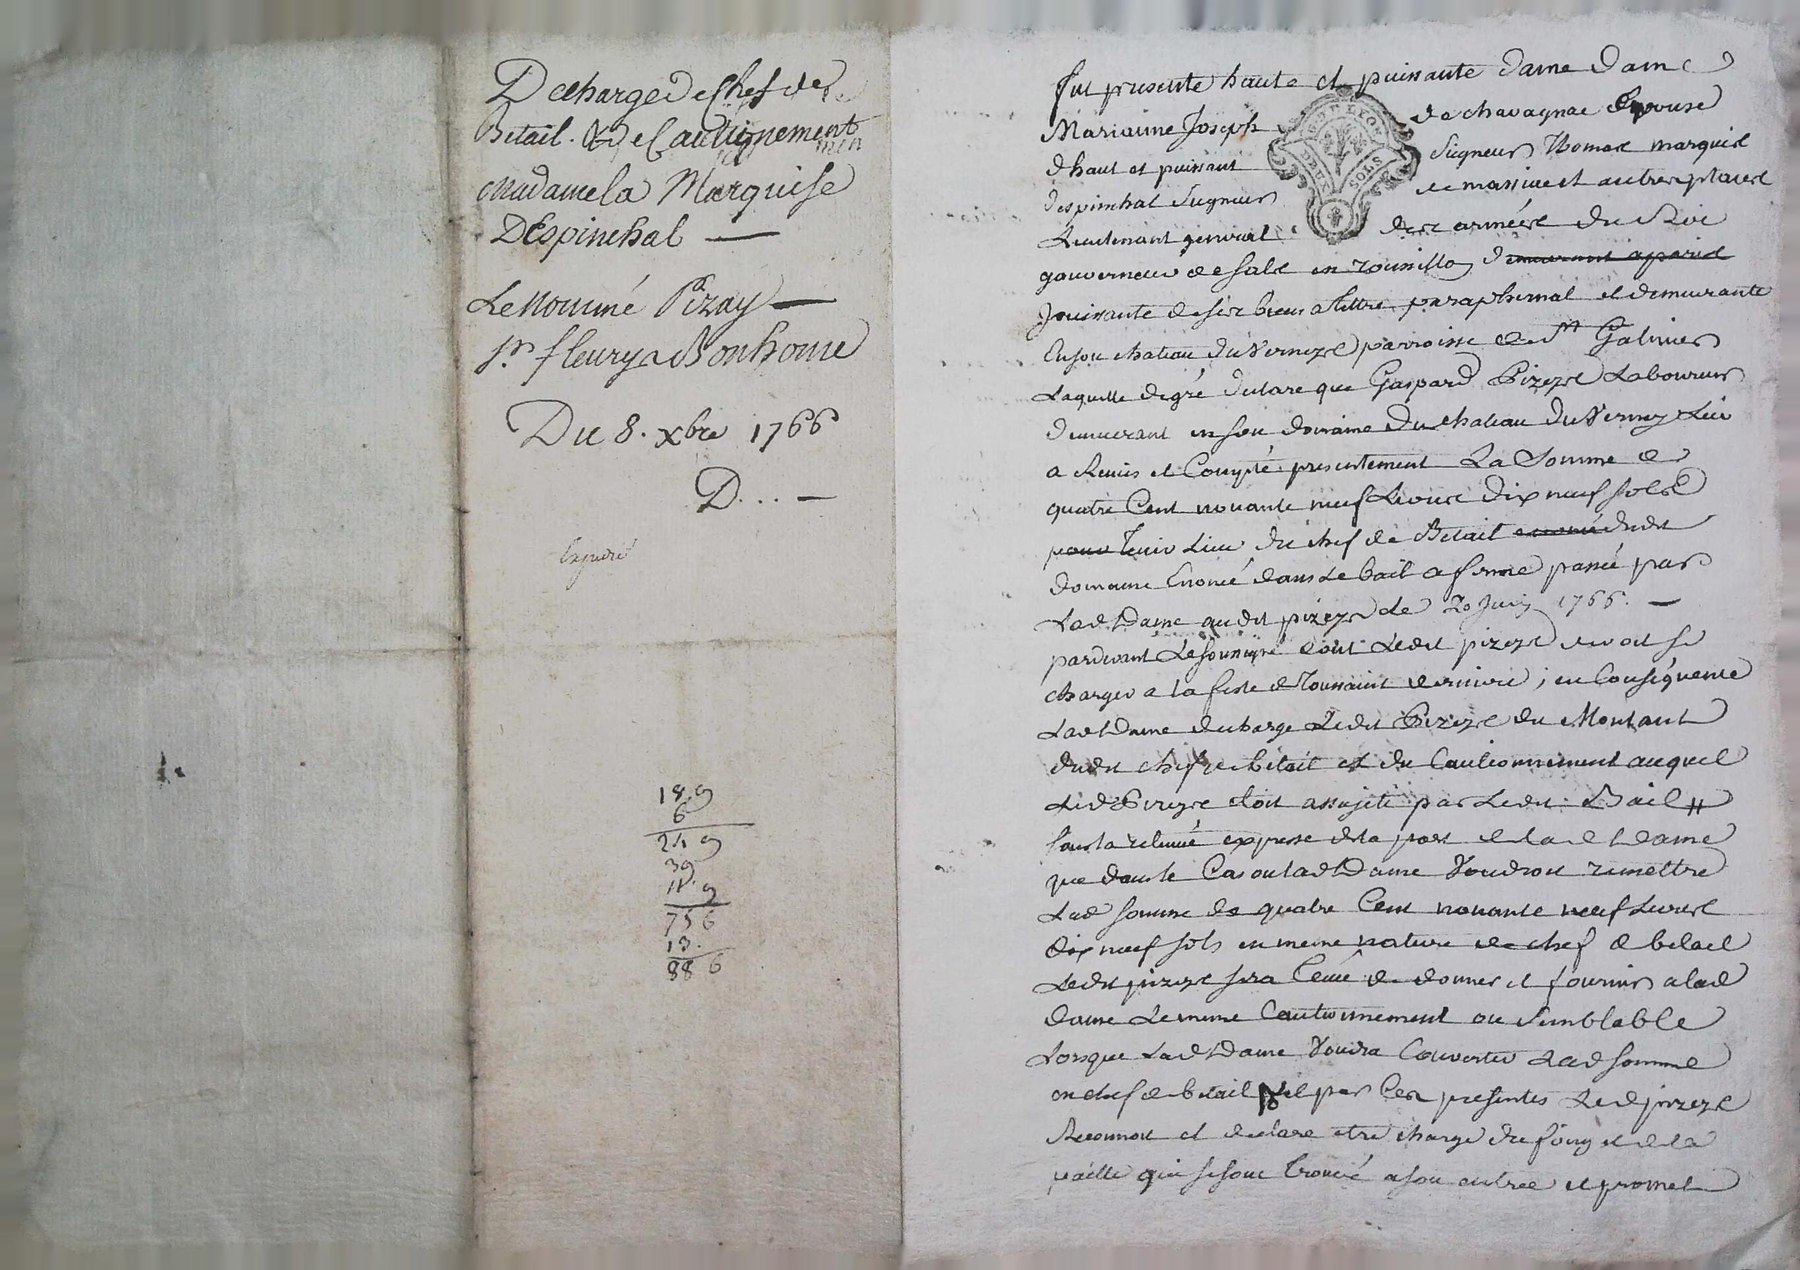 Decharge de Chef de
Betail. & de Cautionement
Madame la Marquise
DEspinchal —
Le nommé Pizay —
Sr. fleury Bonhome
Du 8. xbre 1766
D... —
Expedié
18 9
6
24 9
39
11. 9
756
13.
88 6
fut presente haute et puissante dame dame
Marianne Joseph de chavagnac Epouse
d'haut et puissant Seigneur Thomas marquis
despinchal Seigneur de massiac et autres places
Lieutenant general des armées du Roi
gouverneur de Sals en roussillon demeurant a paris
Jouissante de ses biens a tittre paraphernal et demeurante
En son chateau du Vernezt parroisse de St Galmier
Laquelle de gré declare que Gaspard Pizeyt Laboureur
demeurant en son domaine du chateau du Verney Lui
a Remis et Compté presentement La Somme de
quatre Cent nonante neuf Livres dix neuf sols
pour tenir Lieu du chef de Betail enoncé dudit
domaine Enoncé dans Le bail a ferme passé par
Lad Dame audit pizeyt Le 20 Juin 1766. —
pardevant Le soussigné dont Ledit pizeyt devoit se
charger a la feste de Toussaint derniere ; en Conséquence
Lad Dame decharge Ledit Pizeyt du Montant
dudit chef de bétail et du Cautionnement auquel
Led Pizeyt etoit assujeti par Ledit Bail //
sous la reserve expresse de la part de lad Dame
que dans le Cas ou lad Dame Voudroit remettre
Lad somme de quatre Cent nonante neuf Livres
dix neuf sols en meme nature de chef de betail
Ledit pizeyt sera tenu de donner et fournir a lad
dame Le meme Cautionnement ou Semblable
Lorsque Lad Dame Voudra Convertir Lad somme
en chef de betail par Ces presentes Led pizeyt
Reconnoit et declare etre chargé du foing et de la
paille qui se sont trouvé a son entrée et promet